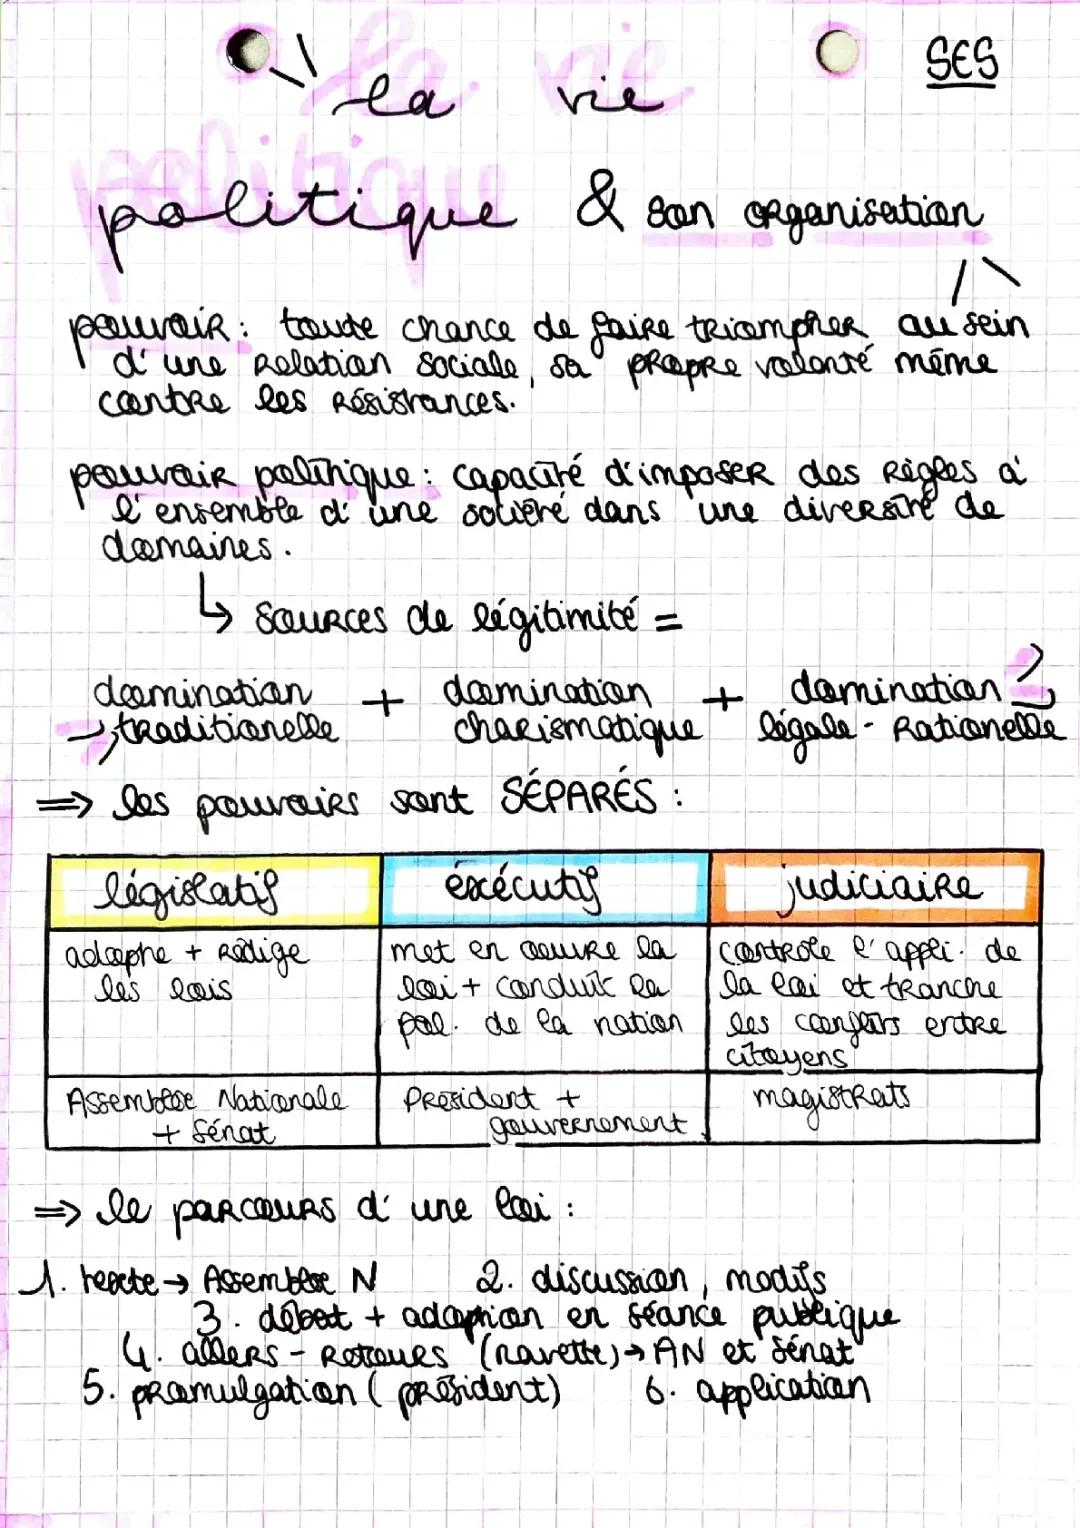 SES
la vie
politique & son organisation
pouvoir : toute chance de faire triompher au sein
d'une relation sociale, sa propre volonté même
contre les résistances.
pouvoir politique : capacité d'imposer des règles à
l'ensemble d'une société dans une diversité de
domaines.
↳ sources de légitimité =
domination + domination + domination
traditionelle charismatique légale - rationelle
=> les pouvoirs sont SÉPARÉS :
législatif éxécutif judiciaire
adopte + rédige met en oeuvre la contrôle l'appli. de
les lois loi + conduit la la loi et tranche
pol. de la nation les conflits entre
citoyens
Assemblée Nationale Président + magistrats
+ Sénat gouvernement
=> le parcours d'une loi :
1. texte → Assemblée N 2. discussion, modifs
3. débat + adoption en séance publique
4. allers - retours (navette) → AN et Sénat
5. promulgation (président) 6. application